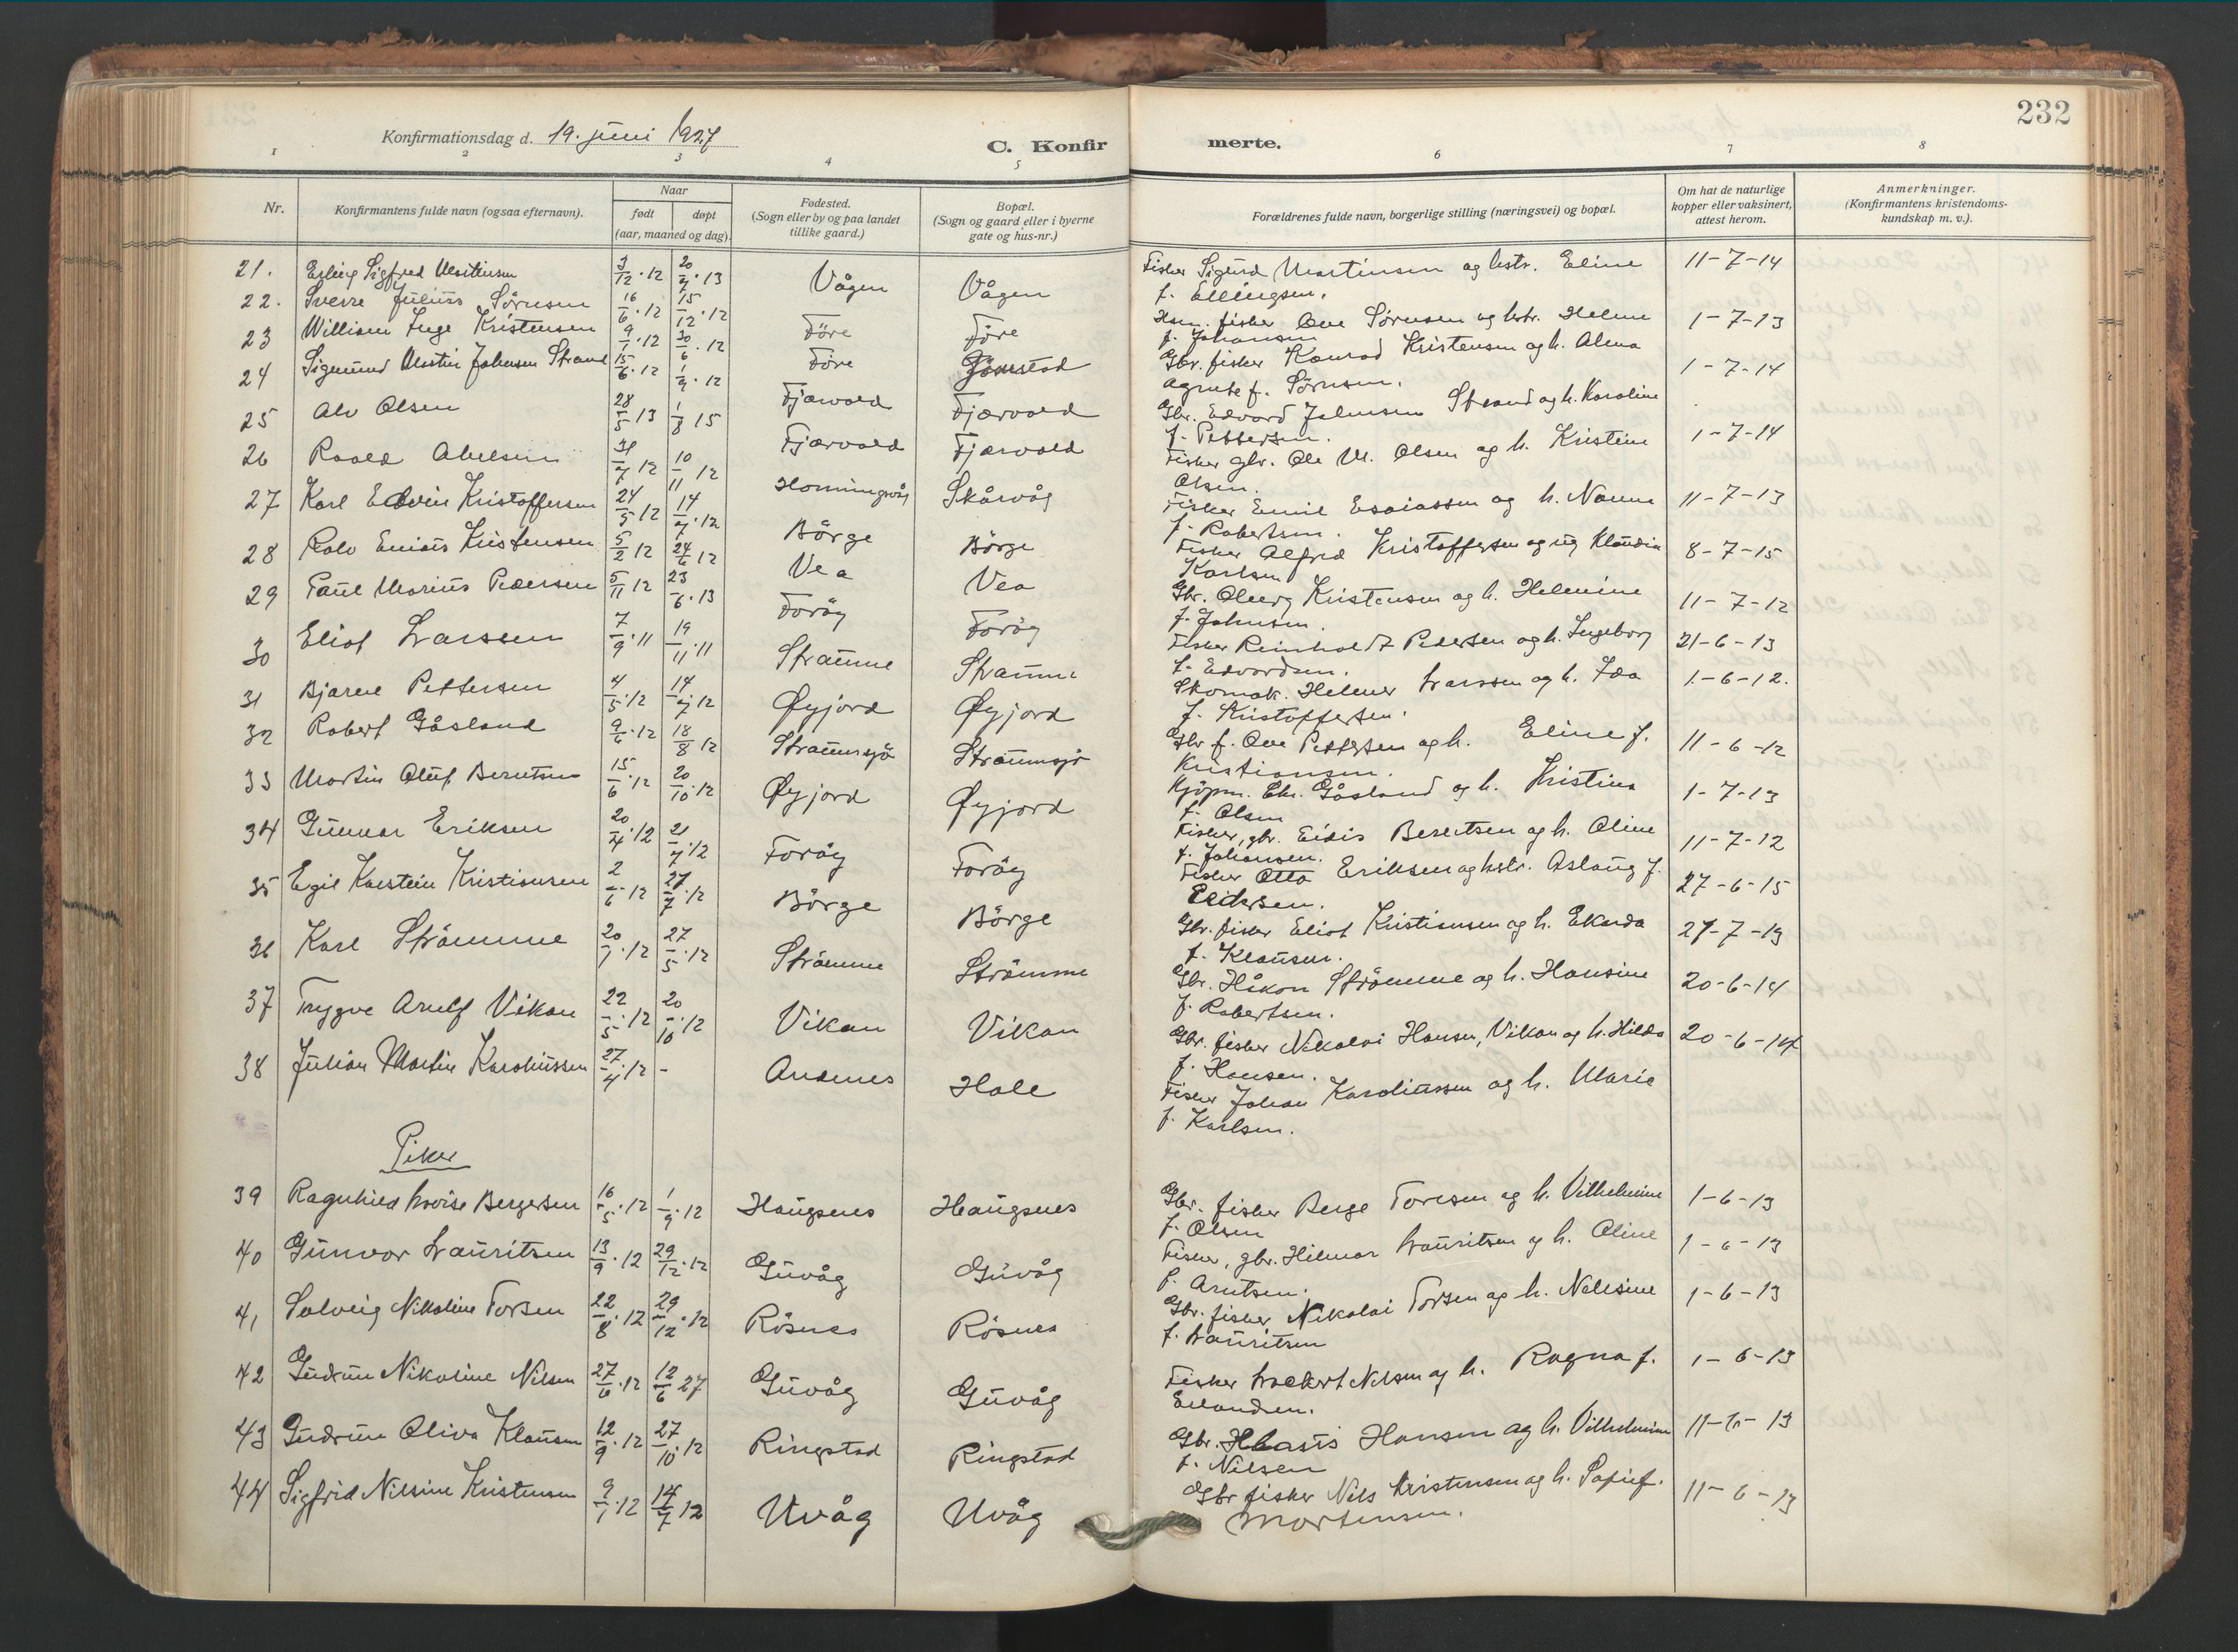 232
Konfirmationsdag d. 19. juni 1927
C. Konfir merte.
1 2 3 4 5 6 7 8
Nr. Konfirmantens fulde navn (ogsaa efternavn). Naar født døpt (aar, maaned og dag). Fødested. (Sogn eller by og paa landet tillike gaard.) Bopæl. (Sogn og gaard eller i byerne gate og hus-nr.) Forældrenes fulde navn, borgerlige stilling (næringsvei) og bopæl. Om hat de naturlige kopper eller vaksinert, attest herom. Anmerkninger. (Konfirmantens kristendomskundskap m. v.).
21. Erling Sigfred Martinsen 3/12.12 20/7.13 Vågen Vågen Fisker Sigurd Martinsen og hstr. Eline f. Ellingsen. 11-7-14
22. Sverre Julius Sörnsen 16/6.12 15/12.12 Före Före fisker Ove Sørensen og hstr. Helene f. Johansen 1-7-13
23 William Inge Kristensen 9/1.12 30/6.12 Före Gbr. fisker Konrad Kristensen og h. Alma Agnete f. Sörnsen. 1-7-14
24 Sigmund Martin Johnsen Strand 15/6.12 1/9.12 Fjærvold Fjærvold Gbr. Edvard Johnsen Strand og h. Karoline f. Pettersen.
25 Alv Olsen 28/5 13 1/8 15 Fjærvold Fjærvold Fisker gbr. Ole M. Olsen og h. Kristine Olsen. 1-7-14
26 Roald Abelsen 31/7 12 10/11 12 Honningsvåg Skårvåg Fisker Emil Esaiassen og h. Nanna f. Robertsen. 11-7-13
27 Karl Edvin Kristoffersen 24/5 12 14/7.12 Börge Börge Fisker Alfred Kristoffersen og Klaudia Karlsen 8-7-15
28 Rolv Enias Kristensen 5/2 12 24/6 12 Vea Vea Gbr. Olberg Kristensen og h. Helmine f. Johnsen. 11-7-12
29 Paul Marius Pedersen 5/11 12 23/6.13 Foröy Foröy Fisker Reinholdt Pedersen og h. Ingeborg f. Edvardsen. 21-6-13
30 Eliot Larssen 7/9.11 19/11.11 Straume Straume Skomak. Helmer Larssen og h. Ida f. Kristoffersen. 1-6-12.
31 Bjarne Pettersen 4/5.12 14/7 12 Øyjord Øyjord Gbr f. Ove Pettersen og h. Eline f. Kristiansen. 11-6-12
32 Robert Gåsland 9/6.12 18/8 12 Straumsjö Straumsjö Kjöpm. Chr. Gåsland og h. Kristina f. Olsen 1-7-13
33 Martin Oluf Berntsen 15/6.12 20/10.12 Øyjord Øyjord Fisker, gbr. Eidis Berntsen og h. Oline f. Johansen. 11-7-12
34 Gunnar Eriksen 20/4.12 21/7.12 Foröy Foröy Fisker Otto Eriksen og hstr. Aslaug f. 27-6-15
35 Egil Karstein Kristiansen 2/6.12 27/7.12 Börge Börge Gbr. fisker Eliot Kristiansen og h. Ekarda f. Klausen. 27-7-13
36 Karl Strömme 20/1.12 27/5.12 Strömme Strömme Gbr. Håkon Strömme og h. Hansine f. Robertsen. 20-6-14
37 Trygve Arnulf Vikan 22/5.12 20/10.12 Vikan Vikan Gbr. fisker Nikolai Hansen, Vikan og h. Hilda f. Hansen. 20-6-14
38 Julian Martin Karoliussen 27/4.12 - Andenes Holle Fisker Johan Karoliussen og h. Marie f. Karlsen.
Piker
39 Ragnhild Lovise Bergersen 16/5.12 1/9.12 Haugsnes Haugsnes Gbr. fisker Berge Toresen og h. Vilhelmine f. Olsen 1-6-13
40 Gunvor Lauritsen 13/9.12 29/12.12 Guvåg Guvåg Fisker, gbr. Hilmar Lauritsen og h. Oline f. Arntsen. 1-6-13
41 Solveig Nikoline Torsen 22/8.12 29/12.12 Rösnes Rösnes Gbr. fisker Nikolai Torsen og h. Nelesine f. Lauritsen 1-6-13
42 Gudrun Nikoline Nilsen 27/6.12 12/6 27 Guvåg Guvåg Fisker Lockert Nilsen og h. Ragna f. Erlandsen. 1-6-13
43 Gudrun Oliva Klausen 12/9.12 27/10.12 Ringstad Ringstad Gbr. Hansen og h. Vilhelmine f. Nilsen 11-6-13
44 Sigfrid Nilsine Kristensen 9/1.12 14/7 12 Uvåg Uvåg Gbr fisker Nils Kristensen og h. Sofie f. Mortensen. 11-6-13